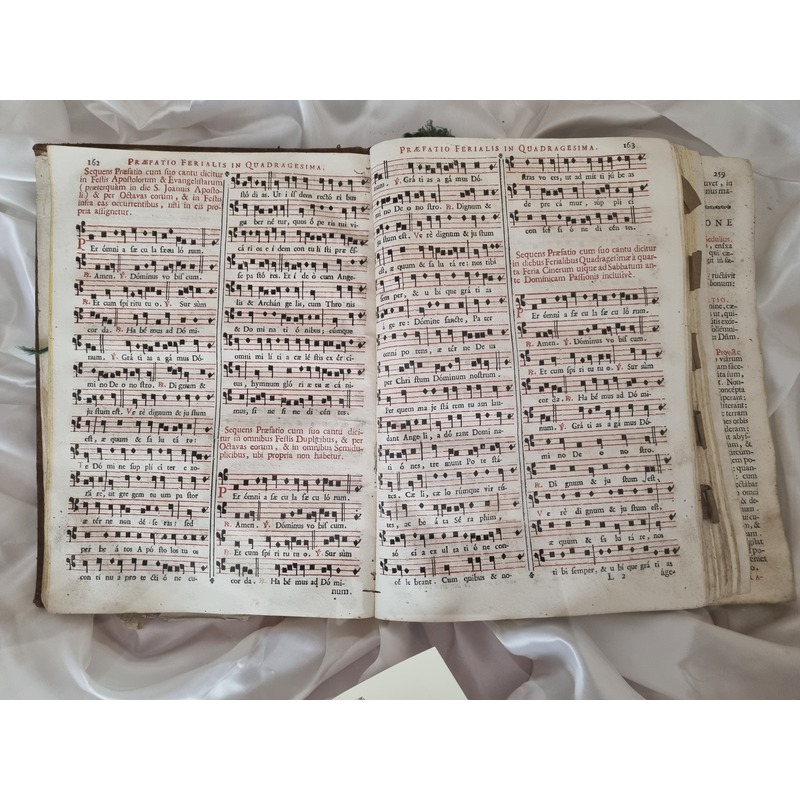 162 PRÆFATIO FERIALIS IN QUADRAGESIMA.
Sequens Præfatio cum suo cantu dicitur
in Festis Apostolorum & Evangelistarum
( præterquam in die S. Joannis Aposto-
li ) & per Octavas eorum, & in Festis
infra eas occurrentibus, nisi in eis pro-
pria assignetur.
PEr ómni a sæ cu la sæcu ló rum.
℟. Amen. ℣. Dóminus vo bis cum.
℟. Et cum spí ri tu tu o. ℣. Sur súm
cor da. ℟. Ha bé mus ad Dó mi-
num. ℣. Grá ti as a gá mus Dó-
mi no De o no stro. ℟. Di gnum &
ju stum est. Ve rè dignum & ju stum
est, æ quum & sa lu tá re:
Te Dó mi ne sup plí ci ter e xo-
rá re, ut gre gem tu um pa stor
æ tér ne non dé se ras: sed
per be á tos A pó sto los tu os
con tí nu a pro te cti ó ne cu-
stó di as. Ut i is dem rectó ri bus
gu ber né tur, quos ó pe ris tui vi-
cá ri os e í dem con tu lí sti præ és-
se pa stó res. Et í de ò cum Ange-
lis & Archán ge lis, cum Thro nis
& Do mi na ti ó nibus; cúmque
omni mi lí ti a cæ lé stis ex ér ci-
tus, hymnum gló ri æ tu æ cá ni-
mus, si ne fi ne di cén tes.
Sequens Præfatio cum suo cantu dici-
tur in omnibus Festis Duplicibus, & per
Octavas eorum, & in omnibus Semidu-
plicibus, ubi propria non habetur.
PEr ómni a sæ cu la sæ cu ló rum.
℟. Amen. ℣. Dóminus vo bis cum.
℟. Et cum spí ri tu tu o. ℣. Sur súm
cor da. ℟. Ha bé mus ad Dó mi-
num.
PRÆFATIO FERIALIS IN QUADRAGESIMA. 163
℣. Grá ti as a gá mus Dó-
mi no De o no stro. ℟. Dignum &
ju stum est. Ve rè dignum & ju stum
est, æ quum & sa lu tá re: nos tibi
sem per, & u bi que grá ti as
á ge re: Dómine sancte, Pa ter
omni po tem, æ tér ne De us
per Chri stum Dóminum nostrum.
Per quem ma je stá tem tu am lau-
dant Ange li, a dó rant Domi na-
ti ó nes, tre munt Po te stá-
tes. Cæ li, cæ lo rúmque vir tú-
tes, ac be á ta Sé ra phim,
só ci a ex ul ta ti ó ne con-
cé le brant. Cum quibus & no-
stras vo ces, ut ad mít ti jú be as
de pre cá mur, súp pli ci
con fes si ó ne di cén tes.
Sequens Præfatio cum suo cantu dicitur
in diebus Ferialibus Quadragesimæ à quar-
ta Feria Cinerum usque ad Sabbatum an-
te Dominicam Passionis inclusivè.
PEr ómni a sæ cu la sæ cu ló rum.
℟. Amen. ℣. Dóminus vo bis cum.
℟. Et cum spí ri tu tu o. ℣. Sur súm
cor da. ℟. Ha bé mus ad Dó mi-
num. ℣. Grá ti as a gá mus Dó-
mi no De o no stro.
℟. Di gnum & ju stum est.
Ve rè di gnum & ju stum est,
æ quum & sa lu tá re, nos
ti bi semper, & u bi que grá ti as
L 2 áge-
259